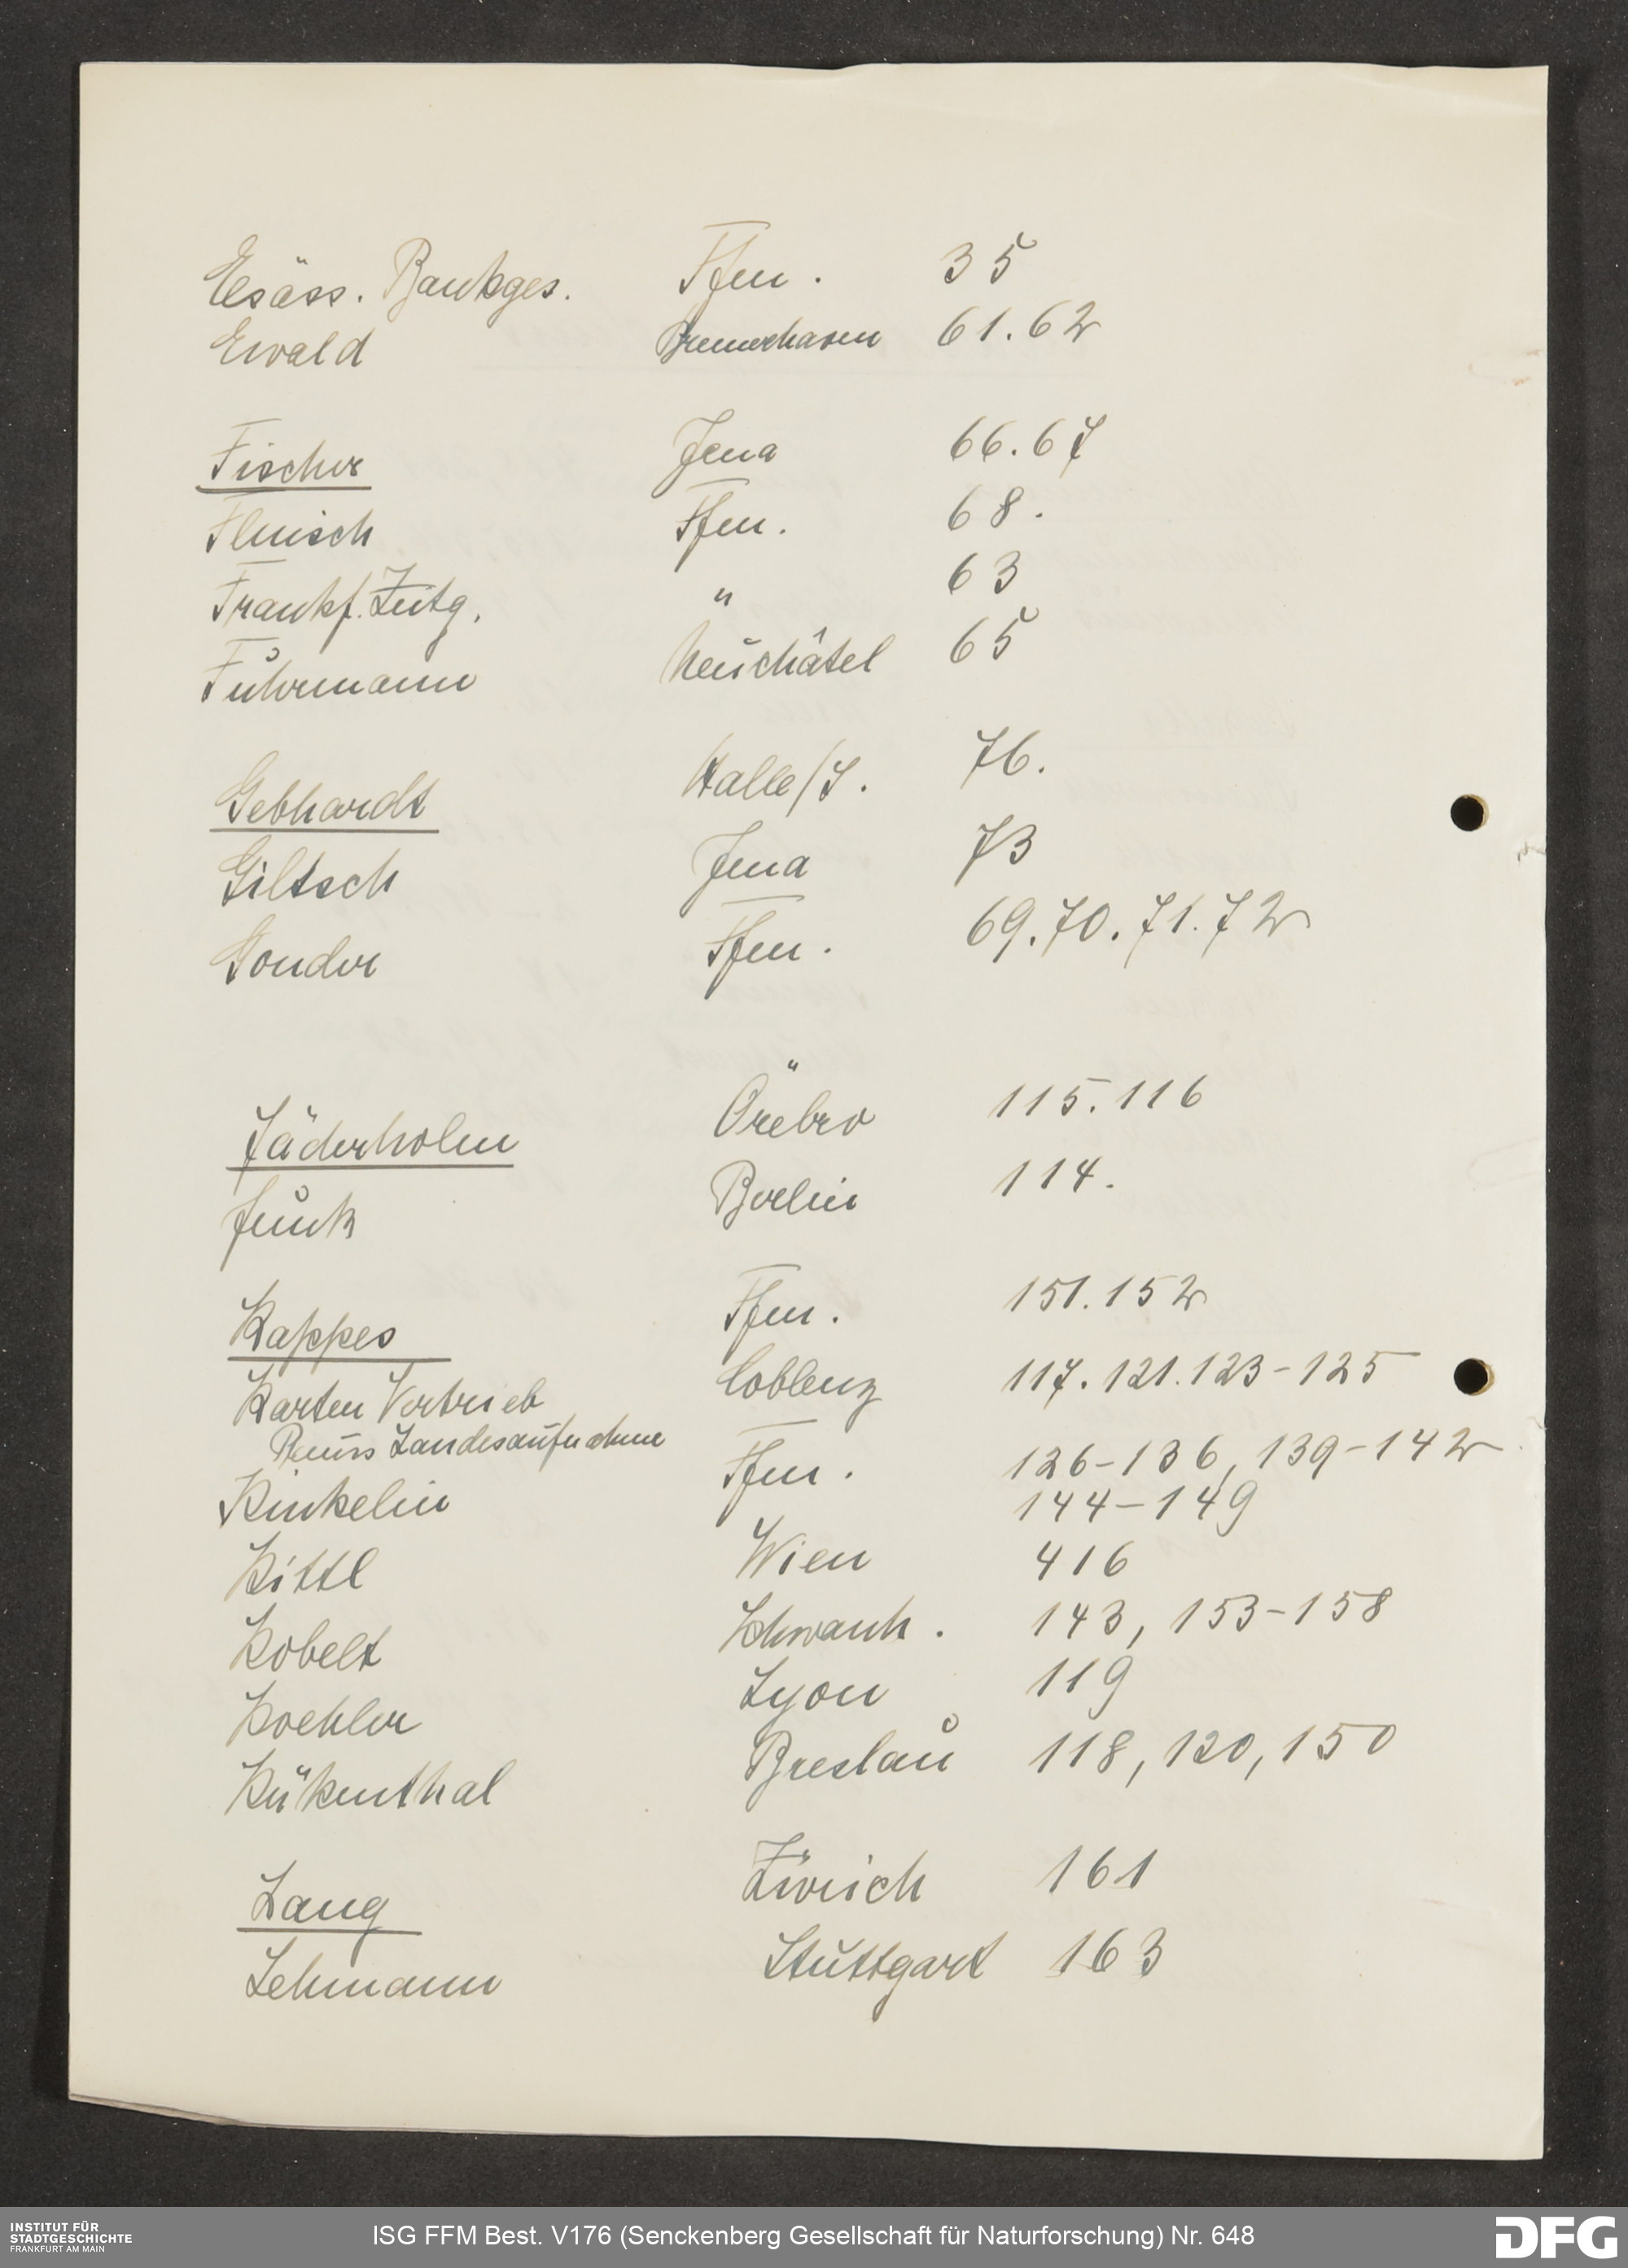 Elsäss. Bankges. Ffm. 35
Ewald Bremerhaven 61.62
Fischer Jena 66.67
Fleisch Ffm. 68.
Frankf. Zeitg. " 63
Fuhrmann Neuchâtel 65
Gebhardt Halle/S. 76.
Giltsch Jena 73
Gonder Ffm. 69.70.71.72
Jäderholm Örebro 115.116
Junk Berlin 114.
Kappes Ffm. 151.152
Karten Vertrieb Coblenz 117.121.123-125
Preuss Landesaufnahme
Kinkelin Ffm. 126-136, 139-142
144-149
Kittl Wien 416
Kobelt Schwanh. 143, 153-158
Koehler Lyon 119
Kükenthal Breslau 118, 120, 150
Lang Zürich 161
Lehmann Stuttgart 163
INSTITUT FÜR
STADTGESCHICHTE
FRANKFURT AM MAIN
ISG FFM Best. V176 (Senckenberg Gesellschaft für Naturforschung) Nr. 648
DFG